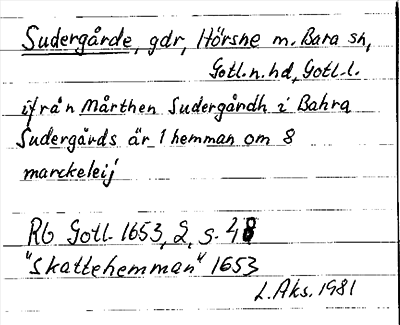 Sudergårde, gdr, Hörsne m. Bara sn,
Gotl. n. hd, Gotl. l.
ifrån Mårthen Sudergårdh i Bahra
Sudergårds är 1 hemman om 8
marckeleij
Rb Gotl. 1653, 2, s. 48
"Skattehemman" 1653
L. Aks. 1981